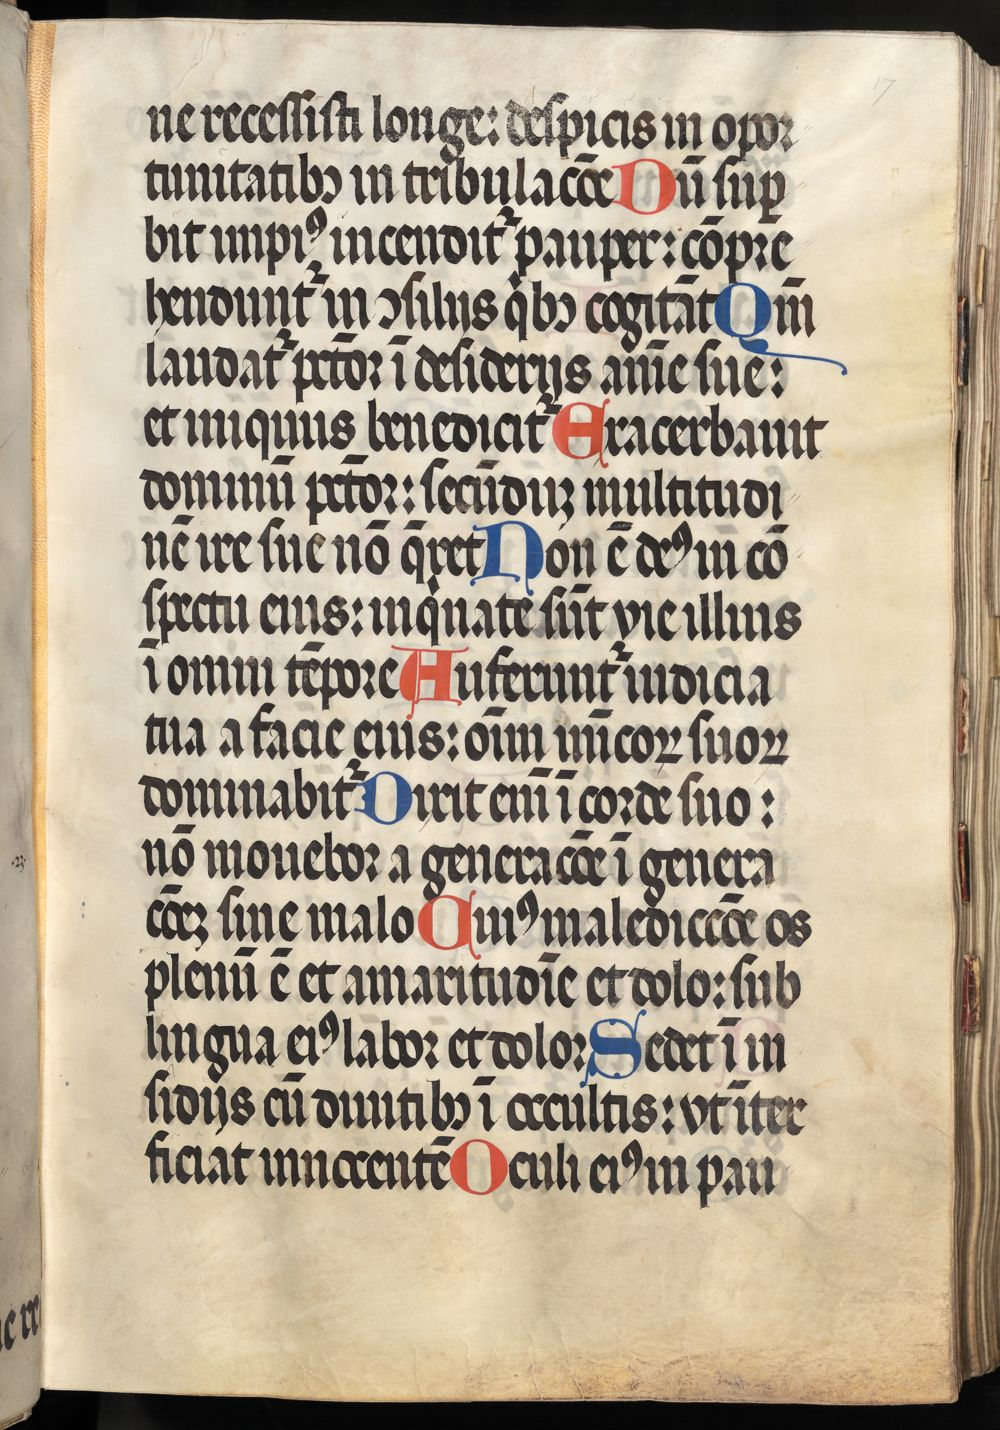 17
ne recessisti longe: despicis in opor
tunitatibꝫ in tribulacõe Dū supͥ
bit impiꝰ incenditᷣ pauper: cōpre
hendunt᷑ in ↄsilijs qͥbꝫ cogitāt Qm̄
laudat᷑ pctōr ī desiderijs anīe sue:
et iniquus benedicit᷑ Exacerbauit
dominū pctōr: secūdum multitudi
nē ire sue nō q̄ret Non ē deꝰ in cō
spectu eius: inqͥnate sūt vie illius
ī omni tēpore Auferunt᷑ iudicia
tua a facie eius: oīm inīcoꝝ suoꝝ
dominabit᷑ Dixit enī ī corde suo:
nō mouebor a generacōe ī genera
cōeꝫ sine malo Cuiꝰ malediccōe os
plenū ē et amaritudīe et dolo: sub
lingua eiꝰ labor et dolor Sedet ī in
sidijs cū diuitibꝫ ī occultis: vt īter
ficiat innocentē Oculi eiꝰ in pau
·23·